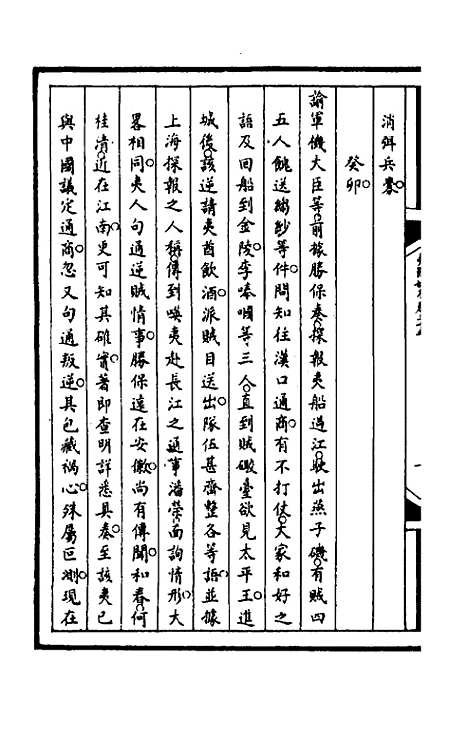 消弭兵釁
癸卯
諭軍機大臣等前據勝保奏探報夷船過江駛出燕子磯有賊四
五人餽送綢紗等件問知往漢口通商有不打仗大家和好之
語及回船到金陵李嗊嘓等三人直到賊礮臺欲見太平王進
城後該逆請夷酋飲酒派賊目送出隊伍甚齊整各等語並據
上海探報之人稱傳到㗸夷赴長江之通事潘榮面詢情形大
畧相同夷人句通逆賊情事勝保遠在安徽尚有傳聞和春何
桂清近在江南更可知其確實著即查明詳悉具奏至該夷已
與中國議定通商忽又句通叛逆其包藏禍心殊屬叵測現在